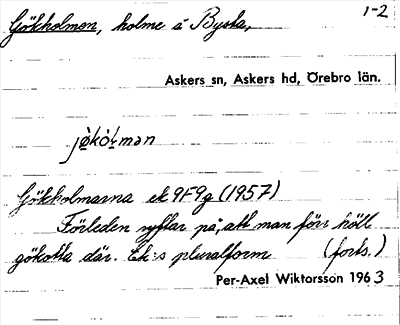 Gökholmen, holme å Bysta,
1-2
Askers sn, Askers hd, Örebro län.
jø̀kól̥mən
Gökholmarna ek 9F9g (1957)
Förleden syftar på, att man förr höll
gökotta där. Ek:s pluralform (forts.)
Per-Axel Wiktorsson 1963